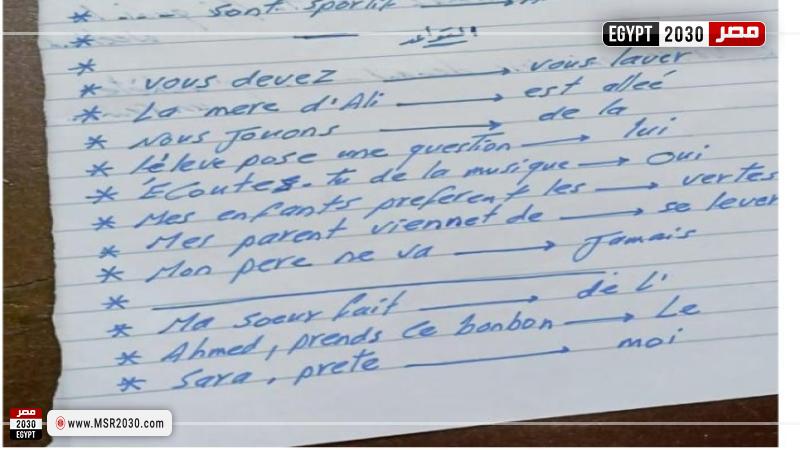 EGYPT 2030 مصر
* --- sont sportif →
* — القواعد
*
* vous devez → vous laver
* La mere d'Ali → est alleé
* Nous Jouons → de la
* l'éleve pose une question → lui
* Écoutes-tu de la musique → Oui
* Mes enfants preferent les → vertes
* Mes parent viennet de → se lever
* Mon pere ne va → Jamais
*
* Ma soeur fait → de l'
* Ahmed, prends ce bonbon → Le
* Sara, prete → moi
مصر
2030
EGYPT
www.MSR2030.com